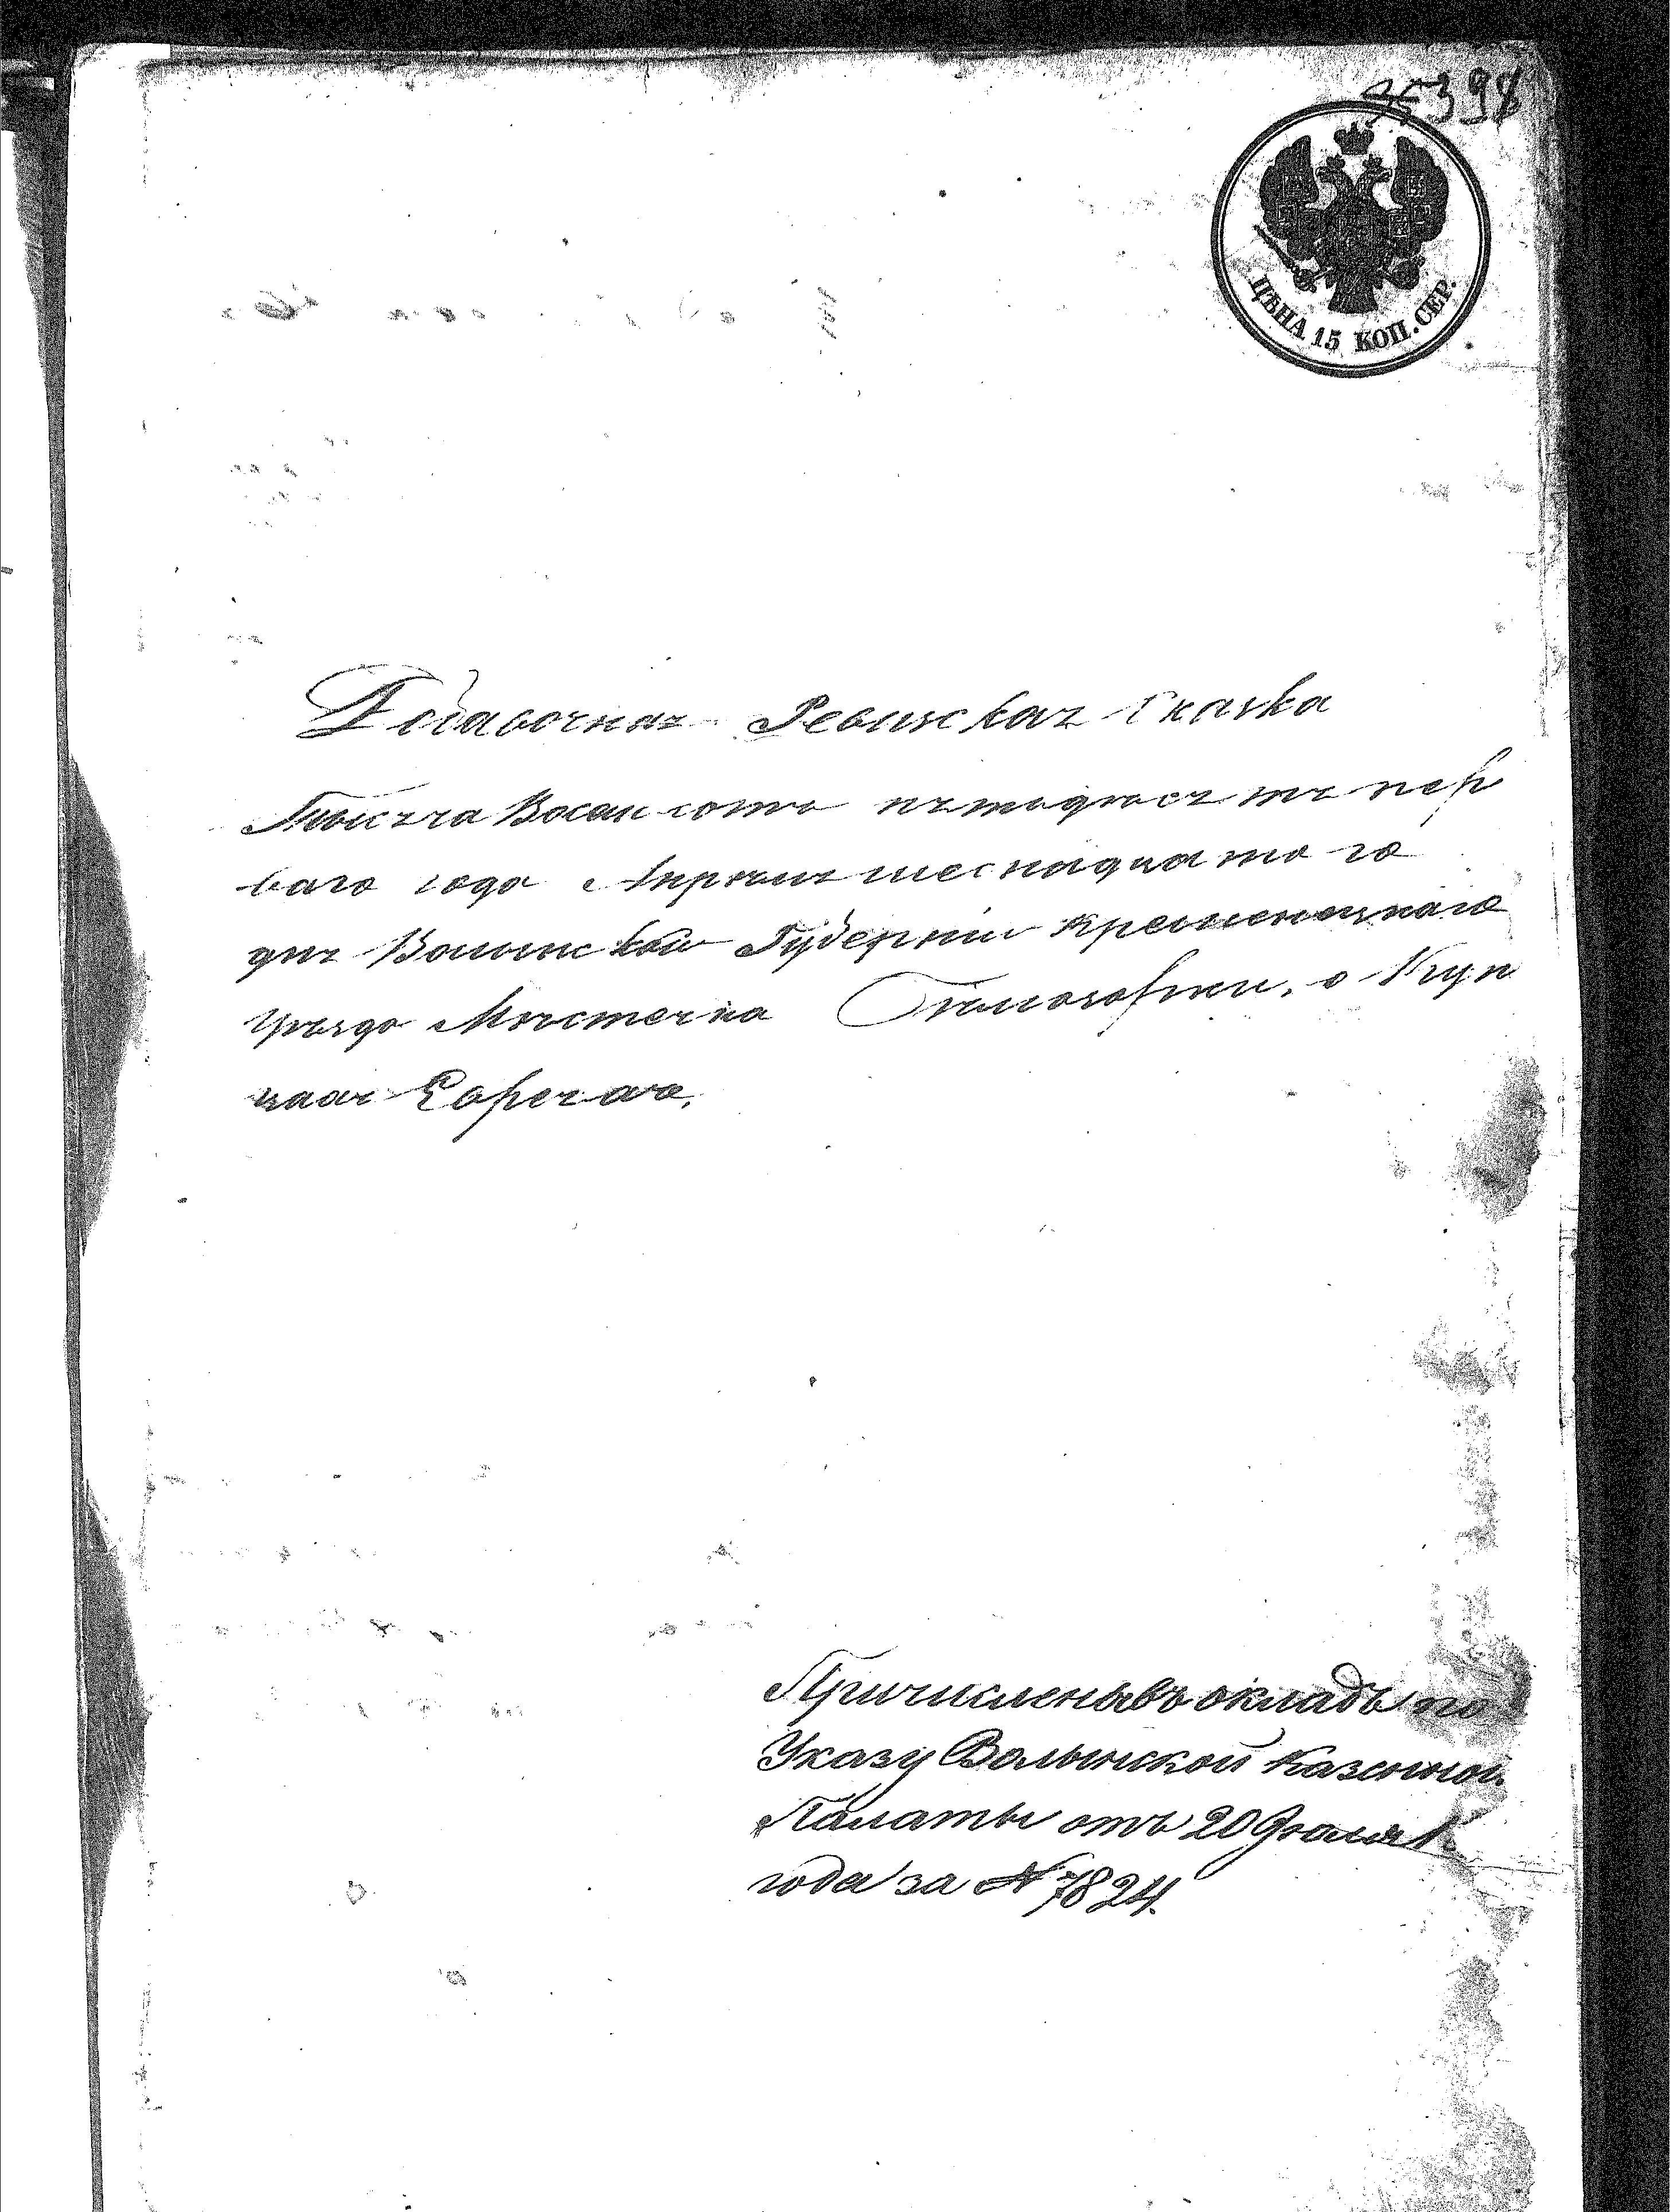 398
ЦѢНА 15 КОП. СЕР.
Добавочная Ревижская Сказка
Тысяча Восемсотъ пятидесятъ пер
ваго года Апреля шеснадцатого
дня Волынской Губернiи Кременецкаго
Уѣзда Мѣстечка о Куп
цахъ Евреяхъ.
Причисленъ въ окладъ по
Указу Волынской Казенной
Палаты отъ 20 Iюля
года за № 7824.